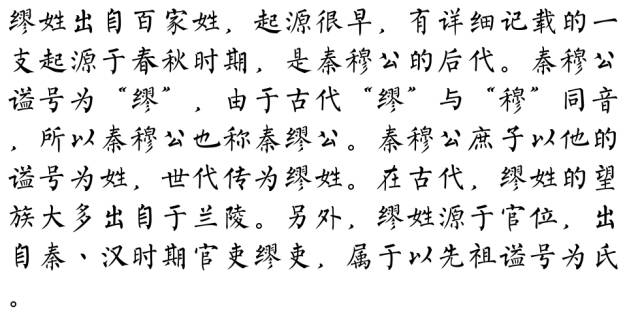 缪姓出自百家姓，起源很早，有详细记载的一
支起源于春秋时期，是秦穆公的后代。秦穆公
谥号为“缪”，由于古代“缪”与“穆”同音
，所以秦穆公也称秦缪公。秦穆公庶子以他的
谥号为姓，世代传为缪姓。在古代，缪姓的望
族大多出自于兰陵。另外，缪姓源于官位，出
自秦、汉时期官吏缪吏，属于以先祖谥号为氏
。